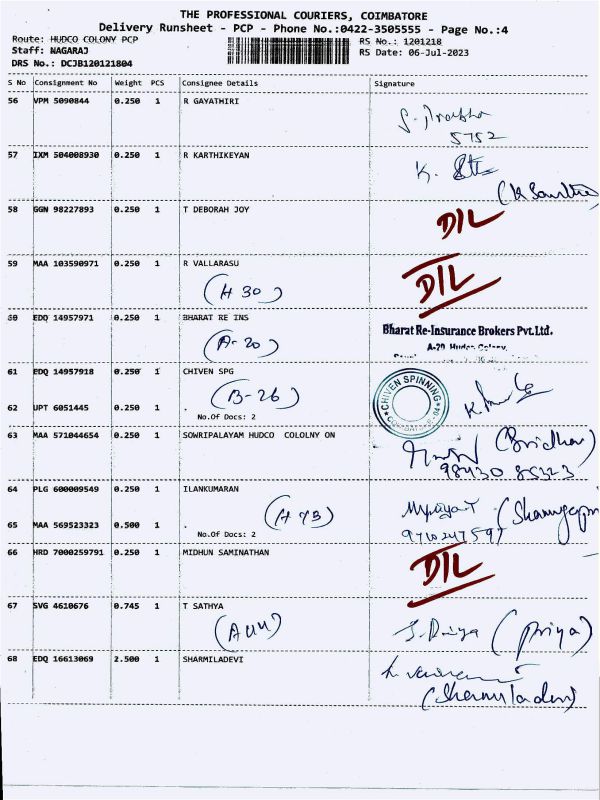 THE PROFESSIONAL COURIERS, COIMBATORE
Delivery Runsheet - PCP - Phone No.:0422-3505555 - Page No.:4
Route: HUDCO COLONY PCP
RS No.: 1201218
Staff: NAGARAJ
RS Date: 06-Jul-2023
DRS No.: DCJB120121804
S No Consignment No Weight PCS Consignee Details Signature
56 VPM 5090844 0.250 1 R GAYATHIRI
5752
57 IXM 504008930 0.250 1 R KARTHIKEYAN
K.
58 GGN 98227893 0.250 1 T DEBORAH JOY
D/L
59 MAA 103590971 0.250 1 R VALLARASU
(H 30) D/L
60 EDQ 14957971 0.250 1 BHARAT RE INS
(A-20)
Bharat Re-Insurance Brokers Pvt.Ltd.
A-20, Hudco Colony,
61 EDQ 14957918 0.250 1 CHIVEN SPG
(B-26)
CHIVEN SPINNING
62 UPT 6051445 0.250 1 .
No.Of Docs: 2
63 MAA 571044654 0.250 1 SOWRIPALAYAM HUDCO COLOLNY ON
(Bridhar)
98430 85323
64 PLG 600009549 0.250 1 ILANKUMARAN
(H 73)
65 MAA 569523323 0.500 1 .
9710247597
No.Of Docs: 2
66 HRD 7000259791 0.250 1 MIDHUN SAMINATHAN
D/L
67 SVG 4610676 0.745 1 T SATHYA
(A44) (Priya)
68 EDQ 16613069 2.500 1 SHARMILADEVI
(Sharmiladevi)